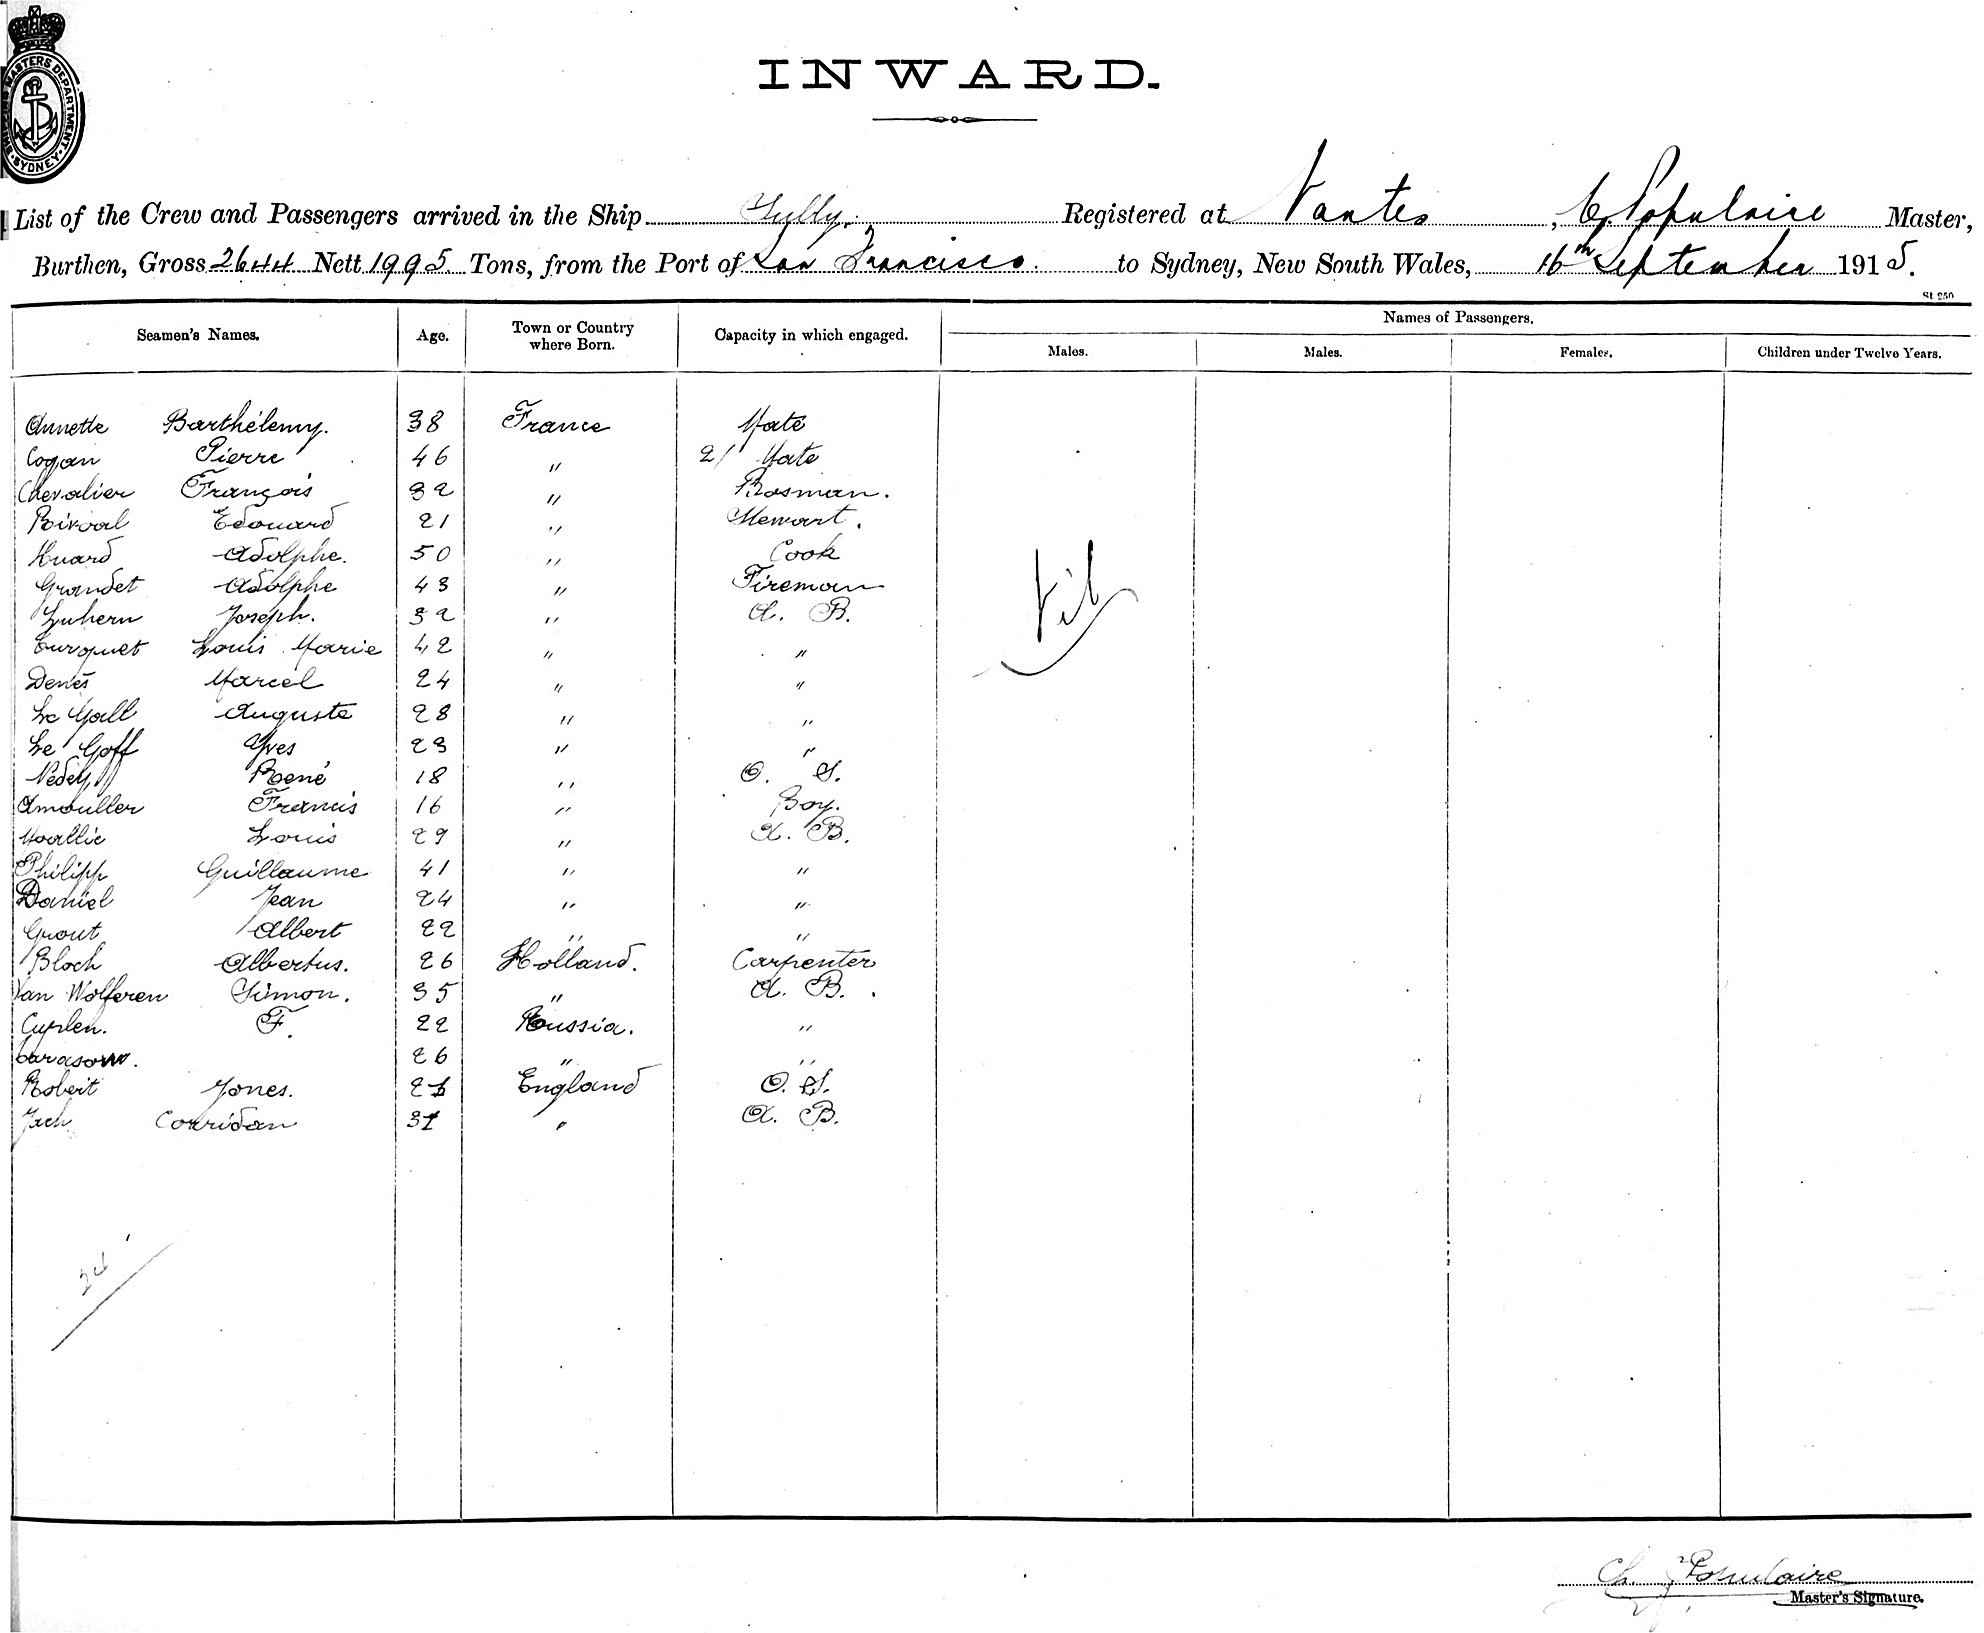 SHIPPING MASTERS DEPARTMENT SYDNEY
INWARD.
List of the Crew and Passengers arrived in the Ship Tully. Registered at Nantes, C. Populaire Master,
Burthen, Gross 2644 Nett 1995 Tons, from the Port of San Francisco. to Sydney, New South Wales, 16th September 1915.
St 250
Seamen's Names. Age. Town or Country where Born. Capacity in which engaged. Names of Passengers.
Males. Males. Females. Children under Twelve Years.
Annette Barthélemy. 38 France Mate
Cogan Pierre 46 " 2/ Mate
Chevalier François 32 " Bosman.
Rivoal Edouard 21 " Stewart.
Huard Adolphe. 50 " Cook
Grandet Adolphe 43 " Fireman
Luhern Joseph. 32 " A. B.
Turquet Louis Marie 42 " "
Denès Marcel 24 " "
Le Gall Auguste 28 " "
Le Goff Yves 23 " "
Nedely René 18 " O. S.
Amouller Francis 16 " Boy.
Moallic Louis 29 " A. B.
Philipp Guillaume 41 " "
Daniel Jean 24 " "
Grout Albert 22 " "
Bloch Albertus. 26 Holland. Carpenter
Van Wolferen Simon. 35 " A. B.
Cyrlen. F. 22 Russia. "
26 " "
Robert Jones. 21 England O. S.
Jach Corridan 31 " A. B.
Nil
24
Ch. Populaire
Master's Signature.